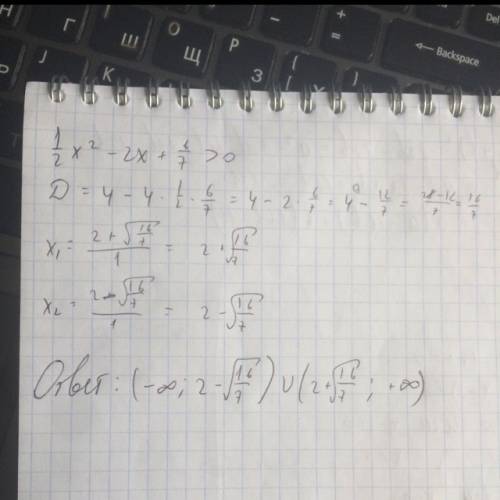 Г Ш О Щ Р З + = - { [ } Backspace Del
J К Х
1/2 x² - 2x + 6/7 > 0
D = 4 - 4 · 1/2 · 6/7 = 4 - 2 · 6/7 = 4 - 12/7 = 28-12/7 = 16/7
x₁ = 2 + √16/7 / 1 = 2 + √16/7
x₂ = 2 - √16/7 / 1 = 2 - √16/7
Ответ: (-∞; 2 - √16/7) ∪ (2 + √16/7; +∞)